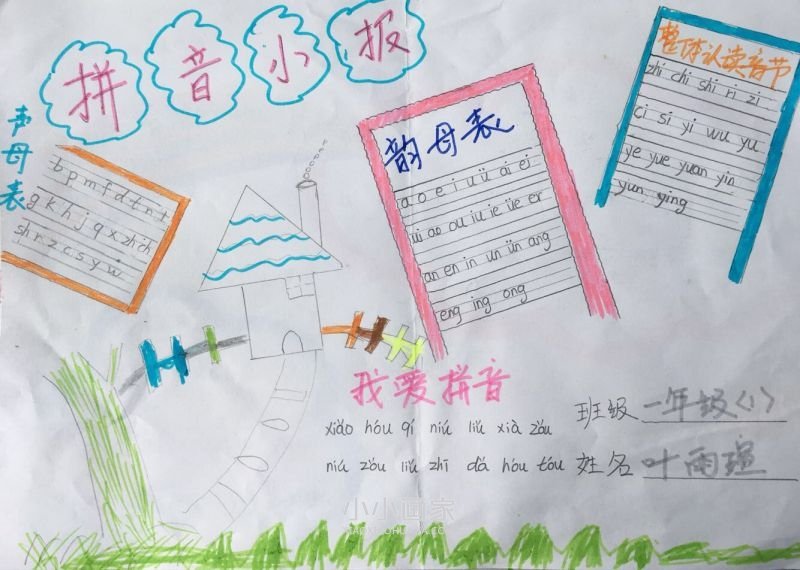 拼音小报
声母表
b p m f d t n t
g k h j q x zh ch
sh r z c s y w
韵母表
a o e i u ü ai ei
ui ao ou iu ie üe er
an en in un ün ang
eng ing ong
整体认读音节
zhi chi shi ri zi
ci si yi wu yu
ye yue yuan yin
yun ying
我爱拼音
xiǎo hóu qí niú liú xià zǒu
niú zǒu liú zhī dǎ hóu tóu
班级 一年级(1)
姓名 叶雨瑄
小小画家